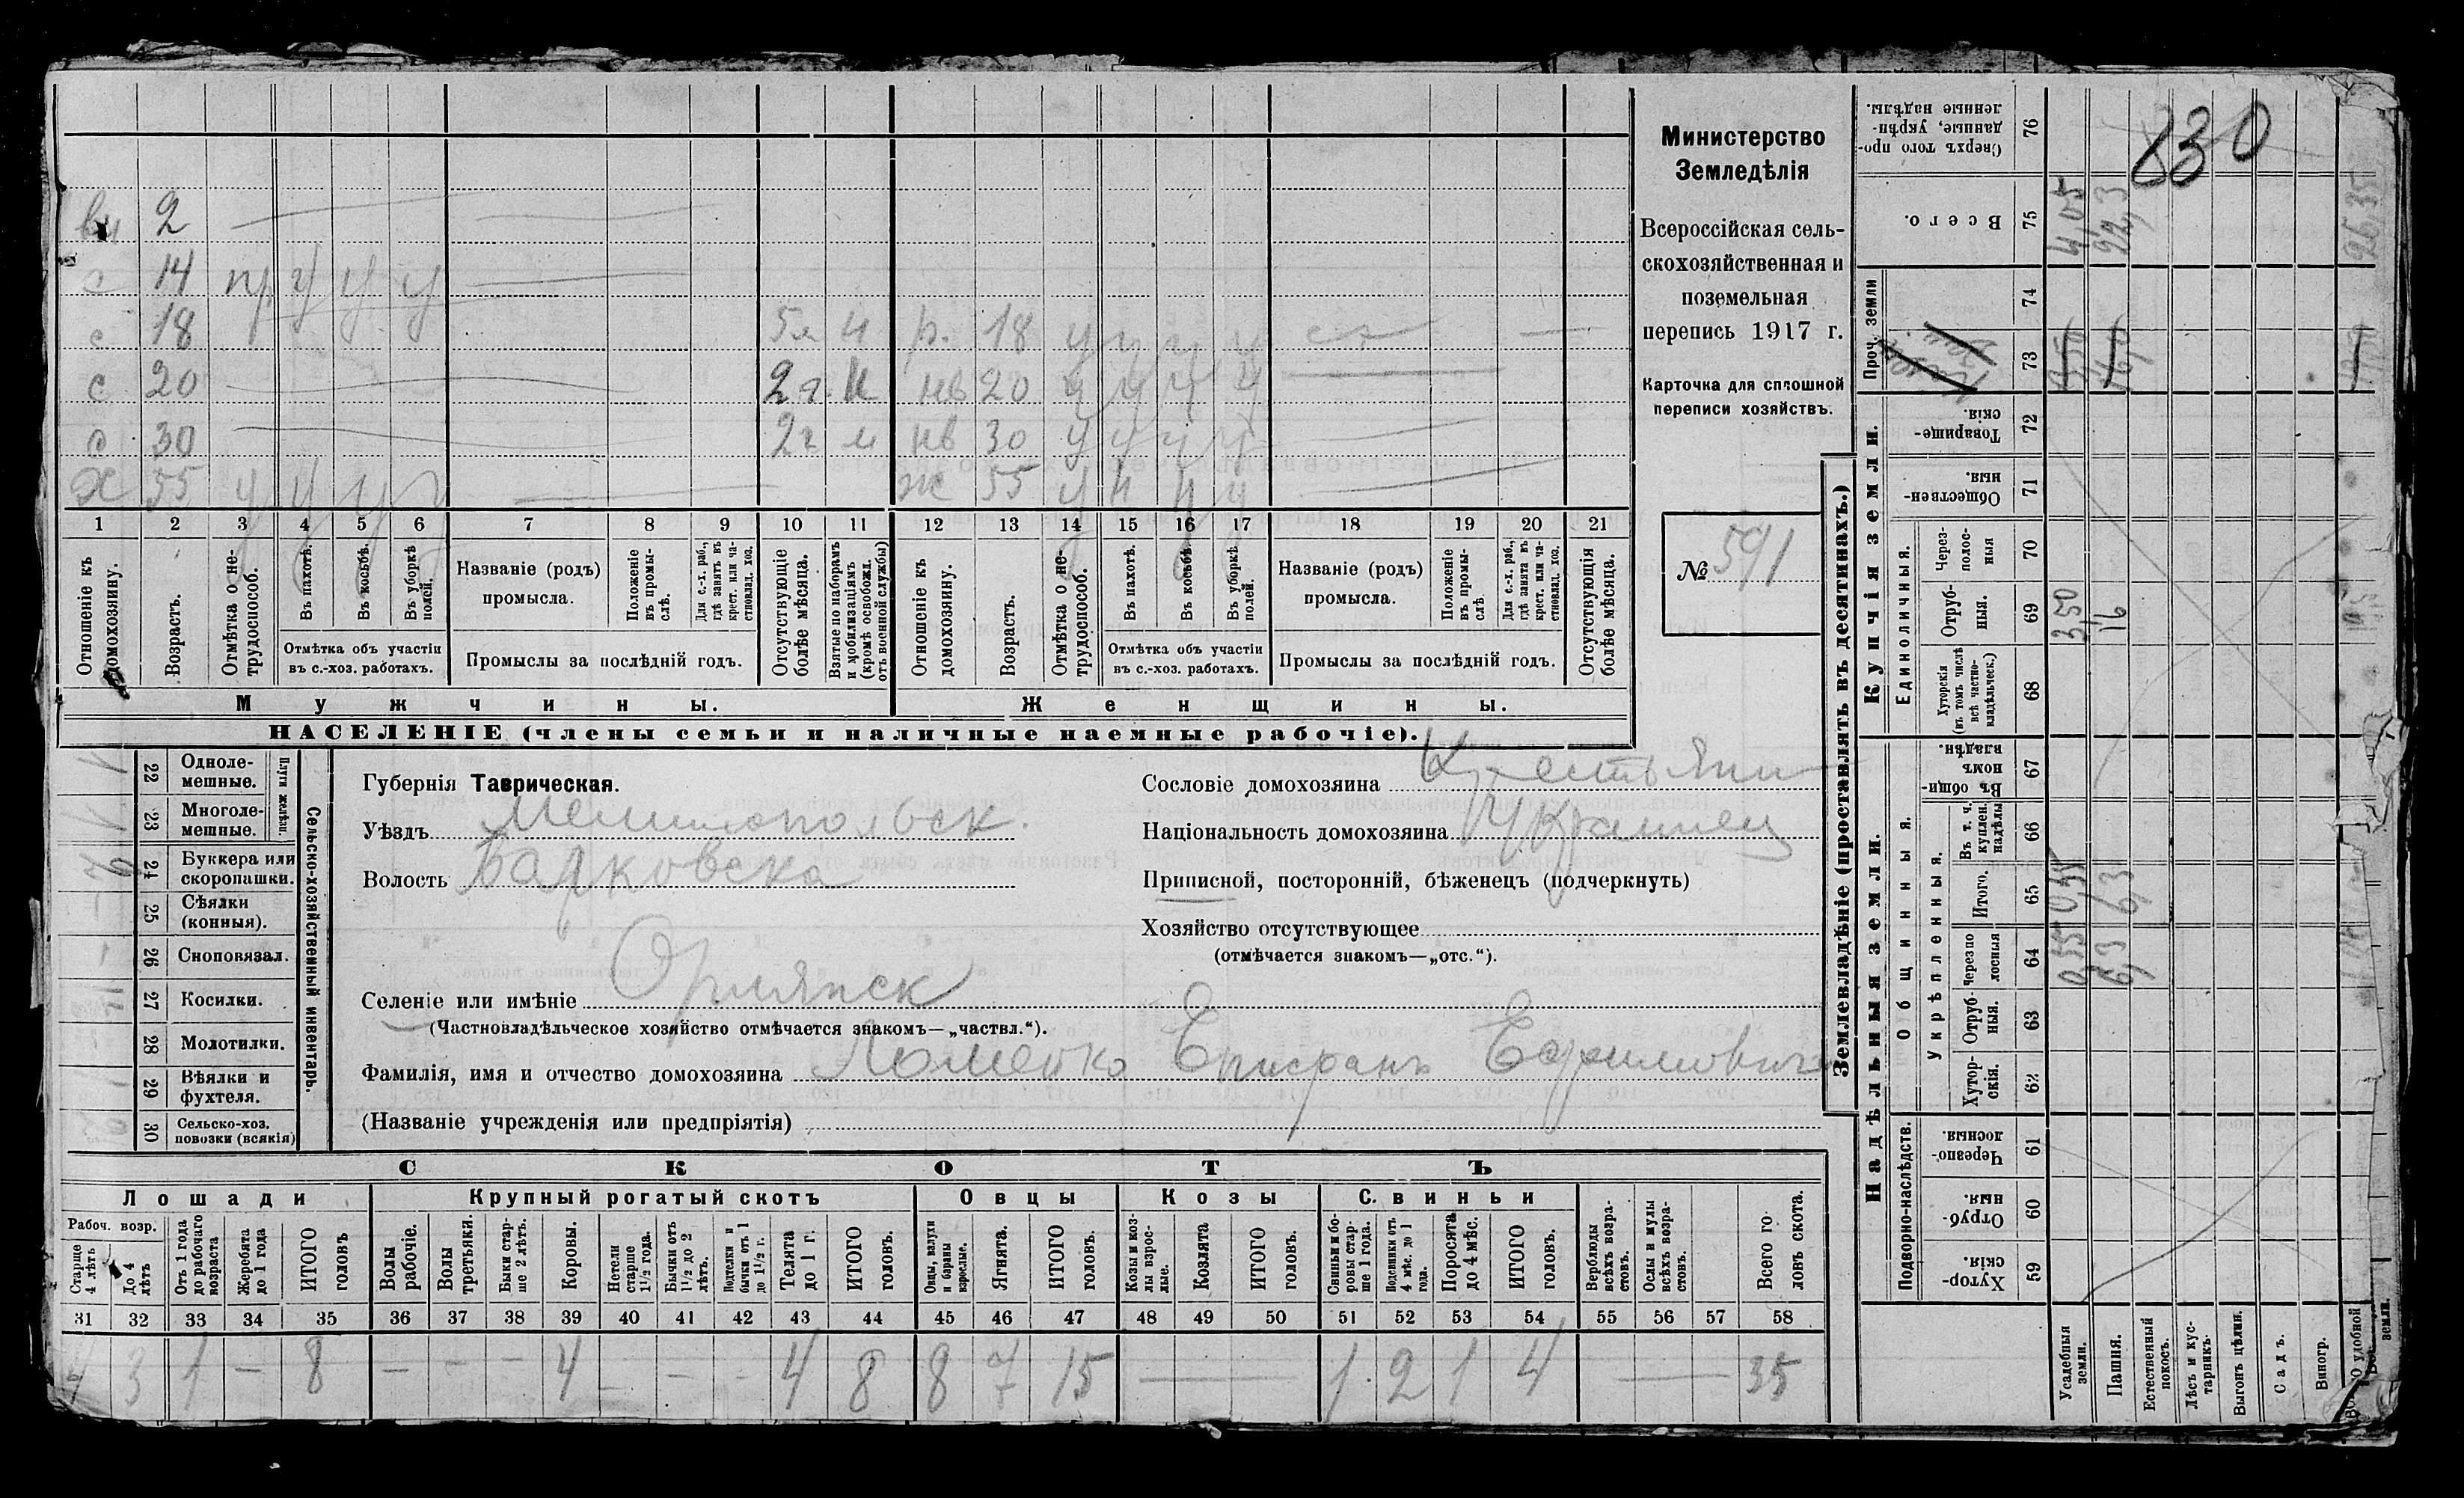 вн 2 —
с 14 пр у у у —
с 18 5л м р. 18 у у у у —
с 20 — 2г. м нв 20 у у у у —
с 30 — 2г м нв 30 у у у у —
Х 55 у у у у — ж 55 у н н у —
1 2 3 4 5 6 7 8 9 10 11 12 13 14 15 16 17 18 19 20 21
Отношеніе къ домохозяину.
Возрастъ.
Отмѣтка о нетрудоспособ.
Въ пахотѣ.
Въ косьбѣ.
Въ уборкѣ полей.
Отмѣтка объ участіи
въ с.-хоз. работахъ.
Названіе (родъ)
промысла.
Положеніе въ промыслѣ.
Для с.-х. раб., гдѣ занятъ въ крест. или частновлад. хоз.
Промыслы за послѣдній годъ.
Отсутствующіе болѣе мѣсяца.
Взятые по наборамъ и мобилизаціямъ (кромѣ освобожд. отъ военной службы)
Отношеніе къ домохозяину.
Возрастъ.
Отмѣтка о нетрудоспособ.
Въ пахотѣ.
Въ косьбѣ.
Въ уборкѣ полей.
Отмѣтка объ участіи
въ с.-хоз. работахъ.
Названіе (родъ)
промысла.
Положеніе въ промыслѣ.
Для с.-х. раб., гдѣ занята въ крест. или частновлад. хоз.
Промыслы за послѣдній годъ.
Отсутствующія болѣе мѣсяца.
Мужчины. Женщины.
НАСЕЛЕНІЕ (члены семьи и наличные наемные рабочіе).
Министерство
Земледѣлія
Всероссійская сель-
скохозяйственная и
поземельная
перепись 1917 г.
Карточка для сплошной
переписи хозяйствъ.
№ 591
22 Однолемешные.
23 Многолемешные.
Плуги желѣзн.
24 Буккера или скоропашки.
25 Сѣялки (конныя).
26 Сноповязал.
27 Косилки.
28 Молотилки.
29 Вѣялки и фухтеля.
30 Сельско-хоз. повозки (всякія)
Сельско-хозяйственный инвентарь.
Губернія Таврическая.
Уѣздъ Мелитопольск.
Волость
Сословіе домохозяина Крестьянин
Національность домохозяина Украинец
Приписной, посторонній, бѣженецъ (подчеркнуть)
Хозяйство отсутствующее
(отмѣчается знакомъ—„отс.“).
Селеніе или имѣніе Орлянск
(Частновладѣльческое хозяйство отмѣчается знакомъ—„частвл.“).
Фамилія, имя и отчество домохозяина Ломейко Епифанъ Ефимович
(Названіе учрежденія или предпріятія)
СКОТЪ
Лошади Крупный рогатый скотъ Овцы Козы Свиньи
Рабоч. возр.
Старше 4 лѣтъ
До 4 лѣтъ
Отъ 1 года до рабочаго возраста
Жеребята до 1 года
ИТОГО головъ
Волы рабочіе.
Волы третьяки.
Быки старше 2 лѣтъ.
Коровы.
Нетели старше 1½ года.
Бычки отъ 1½ до 2 лѣтъ.
Подтелки и бычки отъ 1 до 1½ г.
Телята до 1 г.
ИТОГО головъ.
Овцы, валухи и бараны взрослые.
Ягнята.
ИТОГО головъ.
Козы и козлы взрослые.
Козлята
ИТОГО головъ.
Свиньи и боровы старше 1 года.
Подсвинки отъ 4 мѣс. до 1 года.
Поросята до 4 мѣс.
ИТОГО головъ.
Верблюды всѣхъ возрастовъ.
Ослы и мулы всѣхъ возрастовъ.
Всего головъ скота.
31 32 33 34 35 36 37 38 39 40 41 42 43 44 45 46 47 48 49 50 51 52 53 54 55 56 57 58
4 3 1 — 8 — — — 4 — — — 4 8 8 7 15 — 1 2 1 4 — 35
Землевладѣніе (проставлять въ десятинахъ.)
Надѣльныя земли. Купчія земли. Проч. земли
Сверхъ того проданные, укрѣпленные надѣлы. 76
Всего. 75 4,05 22,3 26,35
74
73
Товарищескія. 72
Общественныя. 71
Единоличныя.
Черезполосныя 70
Отрубныя. 69 3,50 16
Хуторскія (въ томъ числѣ всѣ частновладѣльческ.) 68
Въ общинномъ владѣн. 67
Общинныя.
Укрѣпленныя.
Въ т. ч. куплен. надѣлы 66
Итого. 65 0,55 6,3
Черезполосныя 64 0,55 6,3
Отрубныя. 63
Хуторскія. 62
Подворно-наслѣдств.
Черезполосныя. 61
Отрубныя. 60
Хуторскія. 59
Усадебныя земли.
Пашня.
Естественный покосъ.
Лѣсъ и кустарникъ.
Выгонъ цѣлин.
Садъ.
Виногр.
удобной земли.
130